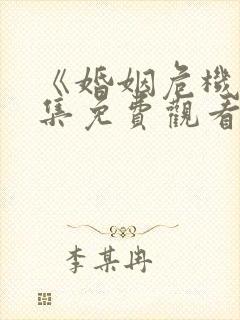 《婚姻危機
集免費觀看
李某冉